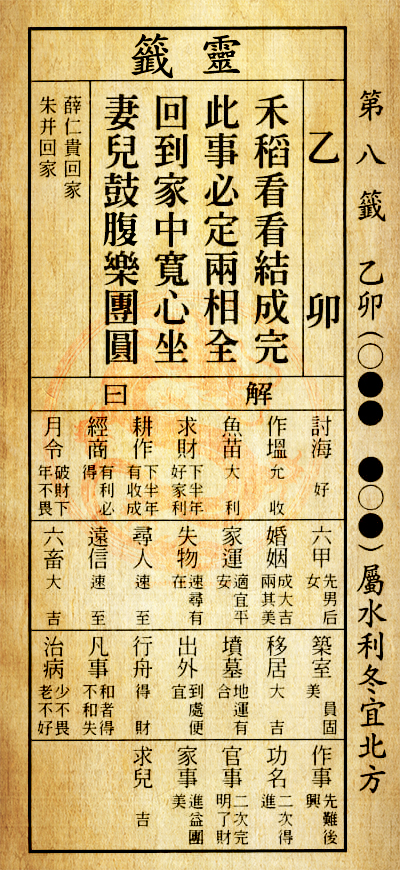 第八籤 乙卯(○●● ●○●)屬水利冬宜北方
靈籤
乙卯
禾稻看看結成完
此事必定兩相全
回到家中寬心坐
妻兒鼓腹樂團圓
薛仁貴回家
朱并回家
解曰
討海 好
作塭 允收
魚苗 大利
求財 下半年好家利
耕作 下半年有收成
經商 有利必得
月令 破財下年不畏
六甲 先男后女
婚姻 成大吉兩其美
家運 適宜平安
失物 速尋有在
尋人 速至
遠信 速至
六畜 大吉
築室 員固美
移居 大吉
墳墓 地運有合
出外 到處便宜
行舟 得財
凡事 和者得不和失
治病 少不畏老不好
作事 先難後興
功名 二次得進
官事 二次完明了財
家事 進益團美
求兒 吉